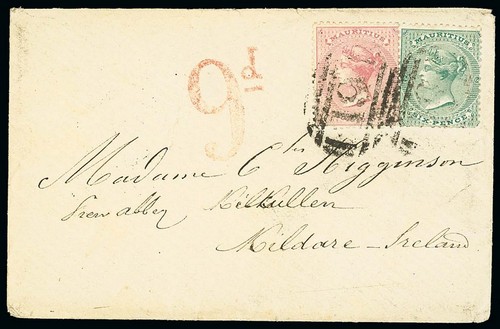 MAURITIUS MAURITIUS
SIX PENCE
9 1d
Madame Ctss Higginson
New abbey Kilkullen
Kildare - Ireland